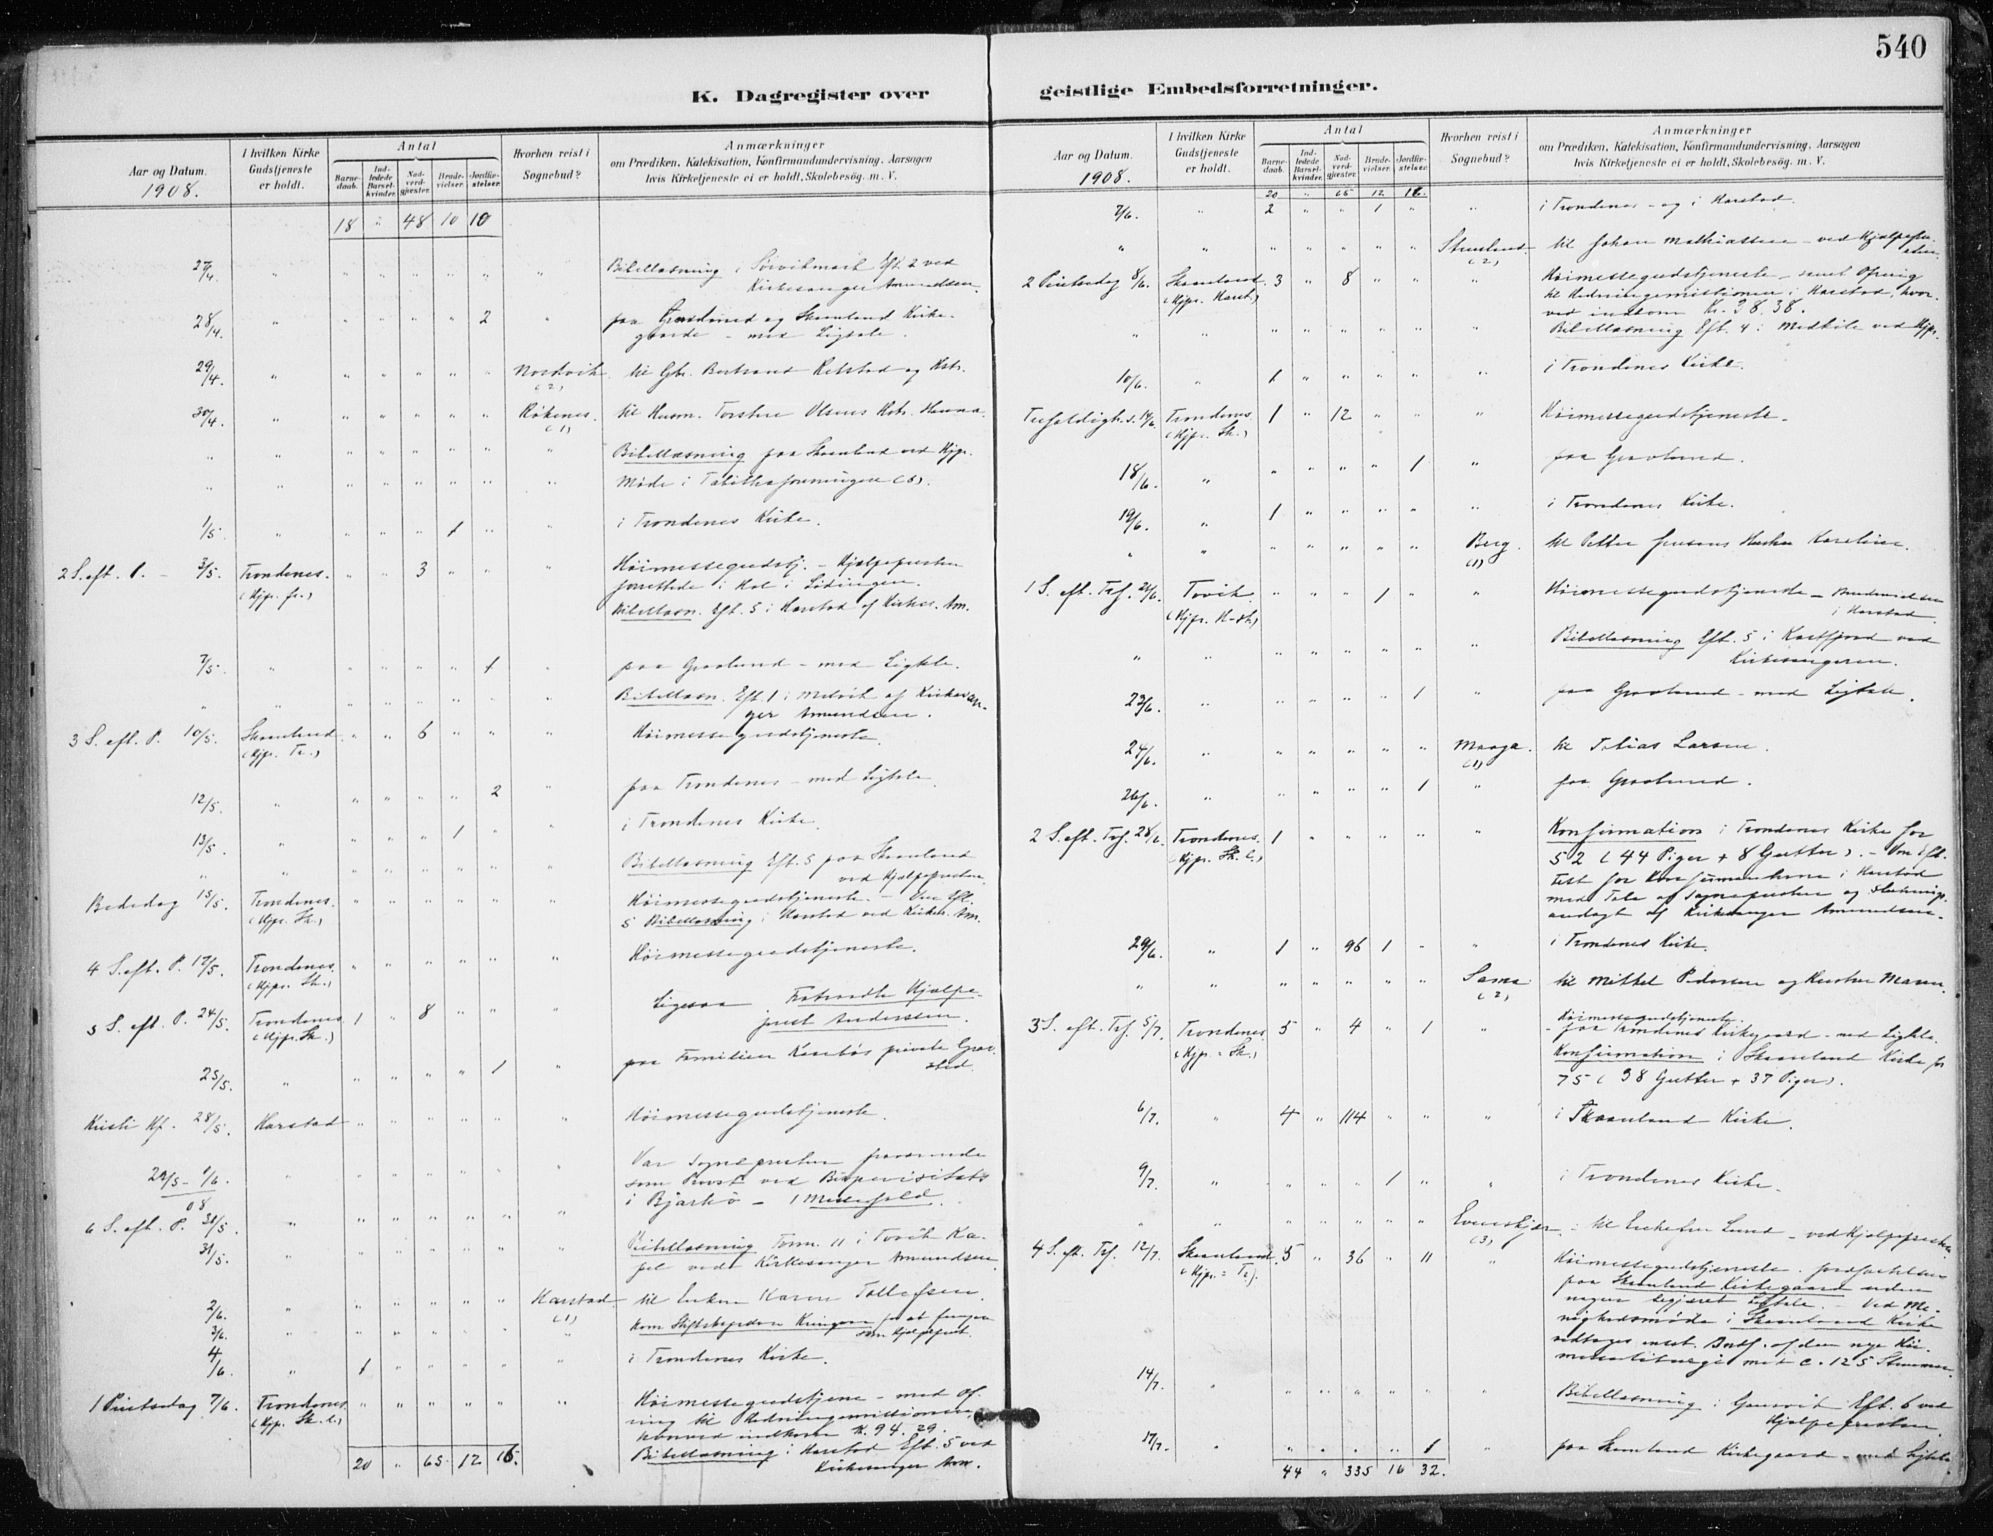 540
K. Dagregister over geistlige Embedsforretninger.
Aar og Datum. 1908.
I hvilken Kirke Gudstjeneste er holdt.
Antal
Barnedaab.
Indledede Barselkvinder.
Nadverdgjester.
Brudevielser.
Jordfæstelser.
Hvorhen reist i Sognebud?
Anmærkninger
om Prædiken, Katekisation, Konfirmandundervisning, Aarsagen
hvis Kirketjeneste ei er holdt, Skolebesøg. m. V.
18 " 48 10 10
27/4 " " " " " " " Bibellæsning i Sørvikmark Eft. 2 ved
Kirkesanger Amundsen.
28/4. " " " " " 2 " paa og Skaanland Kirke-
gaarde - med Ligtale.
29/4. " " " " " " Nordvik (2) til Gbr. og Kstr.
30/4. " " " " " " Røkenes. (1) til Husm. Olsens Kstr. Hanna.
" " " " " " " " Bibellæsning paa Skaanland ved Hjpr.
" " " " " " " " Møde i Tabithaforeningen (5).
1/5. " " " " 1 " " i Trondenes Kirke.
2 S. eft. P. - 3/5. Trondenes. (Hjpr. fr.) " " 3 " " Høimessegudstj. - Hjælpepresten
forrettede i Hol i Lødingen.
Bibellæsn. Eft. 5 i Harstad af Kirkes. Am.
7/5. " " " " " 1 " paa Gravlund - med Ligtale.
" " " " " " " Bibellæsn. Eft. 1 i Melvik af Kirkesan-
ger Amundsen.
3 S. eft. P. 10/5. Skaanland (Hjpr. Tr.) " " 6 " " " Høimessegudstjeneste.
12/5. " " " " " 2 " paa Trondenes - med Ligtale.
13/5. " " " " 1 " " i Trondenes Kirke.
" " " " " " " Bibellæsning Eft. 5 paa Skaanland
ved Hjælpepresten.
Bededag 15/5. Trondenes. (Hjpr. Sk.) " " " " " " Høimessegudstjeneste. - Eft.
5 Bibellæsning i Harstad ved Kirkes. Am.
4 S. eft. P. 17/5. Trondenes. (Hjpr. Sk.) " " " " " " Høimessegudstjeneste.
5 S. eft. P. 24/5. Trondenes (Hjpr. Sk.) 1 " 8 " " " Ligesaa Fratraadte Hjælpe-
prest Anderssen.
25/5. " " " " " 1 " paa Familien private Grav-
sted.
Kristi Hf. 28/5. Harstad " " " " " " Høimessegudstjeneste.
29/5 - 1/6. 08 " " " " " " " Var Sognepresten fraværende
som Provst ved Bispevisitats
i Bjarkø -
6 S. eft. P. 31/5. " " " " " " "
31/5. " " " " " " " Bibellæsning Form. 11 i Tovik Ka-
pel ved Kirkesanger Amundsen
2/6. " " " " " " Harstad. (1) til Enken Karen Tollefsen.
3/6. " " " " " " " Kom Stiftskapellan for at fungere
som Hjælpeprest.
4/6. " 1 " " " " " i Trondenes Kirke.
1 Pintsedag 7/6. Trondenes (Hjpr. Sk. l.) " " " " " " Høimessegudstjene - med Of-
ring til Redningsmissionen,
hvorved indkom Kr. 94.29.
Bibellæsning i Harstad Eft. 5 ved
Kirkesanger Am.
20 " 65 12 16.
Aar og Datum. 1908.
I hvilken Kirke Gudstjeneste er holdt.
Antal
Barnedaab.
Indledede Barselkvinder.
Nadverdgjester.
Brudevielser.
Jordfæstelser.
Hvorhen reist i Sognebud?
Anmærkninger
om Prædiken, Katekisation, Konfirmandundervisning, Aarsagen
hvis Kirketjeneste ei er holdt, Skolebesøg. m. V.
20 " 65 12 16.
7/6. " 2 " " 1 " " i Trondenes - og i Harstad.
" " " " " " " (2) til Johan Mathiassen - ved Hjælpepre-
sten.
2 Pintsedag 8/6. Skaanland (Hjpr. Harst.) 3 " 8 " " " Høimessegudstjeneste - samt Ofring
til Redningsmissionen i Harstad, hvor-
ved indkom Kr. 38.38.
" " " " " " " " Bibellæsning Eft. 4 i Medkile ved Hjpr.
10/6. " 1 " " " " " i Trondenes Kirke.
Trefoldigh. S. 14/6. Trondenes (Hjpr. Sk.) 1 " 12 " " " Høimessegudstjeneste.
18/6. " " " " " 1 " paa Gravlund.
19/6. " 1 " " " " " i Trondenes Kirke.
" " " " " " " Berg. (1) til Petter Jensens Hustru Karoline.
1 S. eft. Tref. 21/6. Tovik (Hjpr. H-Sk) " " " 1 " " Høimessegudstjeneste - Brudevielsen
i Harstad.
" " " " " " " " Bibellæsning Eft. 5 i Kasfjord ved
Kirkesangeren.
23/6. " " " " " 1 " paa Gravlund - med Ligtale.
24/6. " " " " " " Maaga. (1) til Tobias Larsen.
26/6. " " " " " 1 " paa Gravlund.
2 S. eft. Tref. 28/6. Trondenes (Hjpr. Sk. l.) 1 " " " " " Konfirmation i Trondenes Kirke for
52 (44 Piger + 8 Gutter). - Eft.
fest for Konfirmanterne i Harstad
med Tale af Sognepresten og Slutnings-
andagt af Kirkesanger Amundsen.
29/6. " 1 " 96 1 " " i Trondenes Kirke.
" " " " " " " Sama (2) til Mikkel Pedersen og Hustru Maren.
3 S. eft. Tref. 5/7. Trondenes (Hjpr. = Sk.) 5 " 4 " 1 " Høimessegudstjeneste.
- paa Trondenes Kirkegaard - med Ligtale.
Konfirmation i Skaanland Kirke for
75 (38 Gutter + 37 Piger).
6/7. " 4 " 114 " " " i Skaanland Kirke.
9/7. " " " " 1 " " i Trondenes Kirke.
" " " " " " " Evenskjær (3) - til Enkefru Lund - ved Hjælpepresten
4 S. eft. Tref. 12/7. Skaanland. (Hjpr. = Tr.) 5 " 36 " 11 " Høimessegudstjeneste. Jordfæstelsen
paa Skaanland Kirkegaard uden
nogen Ligtale. - Ved Me-
nighedsmøde i Skaanland Kirke
vedtages enst. Indf. af den nye Høi-
messeliturgi med c. 125 Stemmer.
14/7. " " " " " " " Bibellæsning i Eft. 6 ved
Hjælpepresten.
17/7. " " " " " 1 " paa Skaanland Kirkegaard - med Ligtale.
44 " 335 16 32.